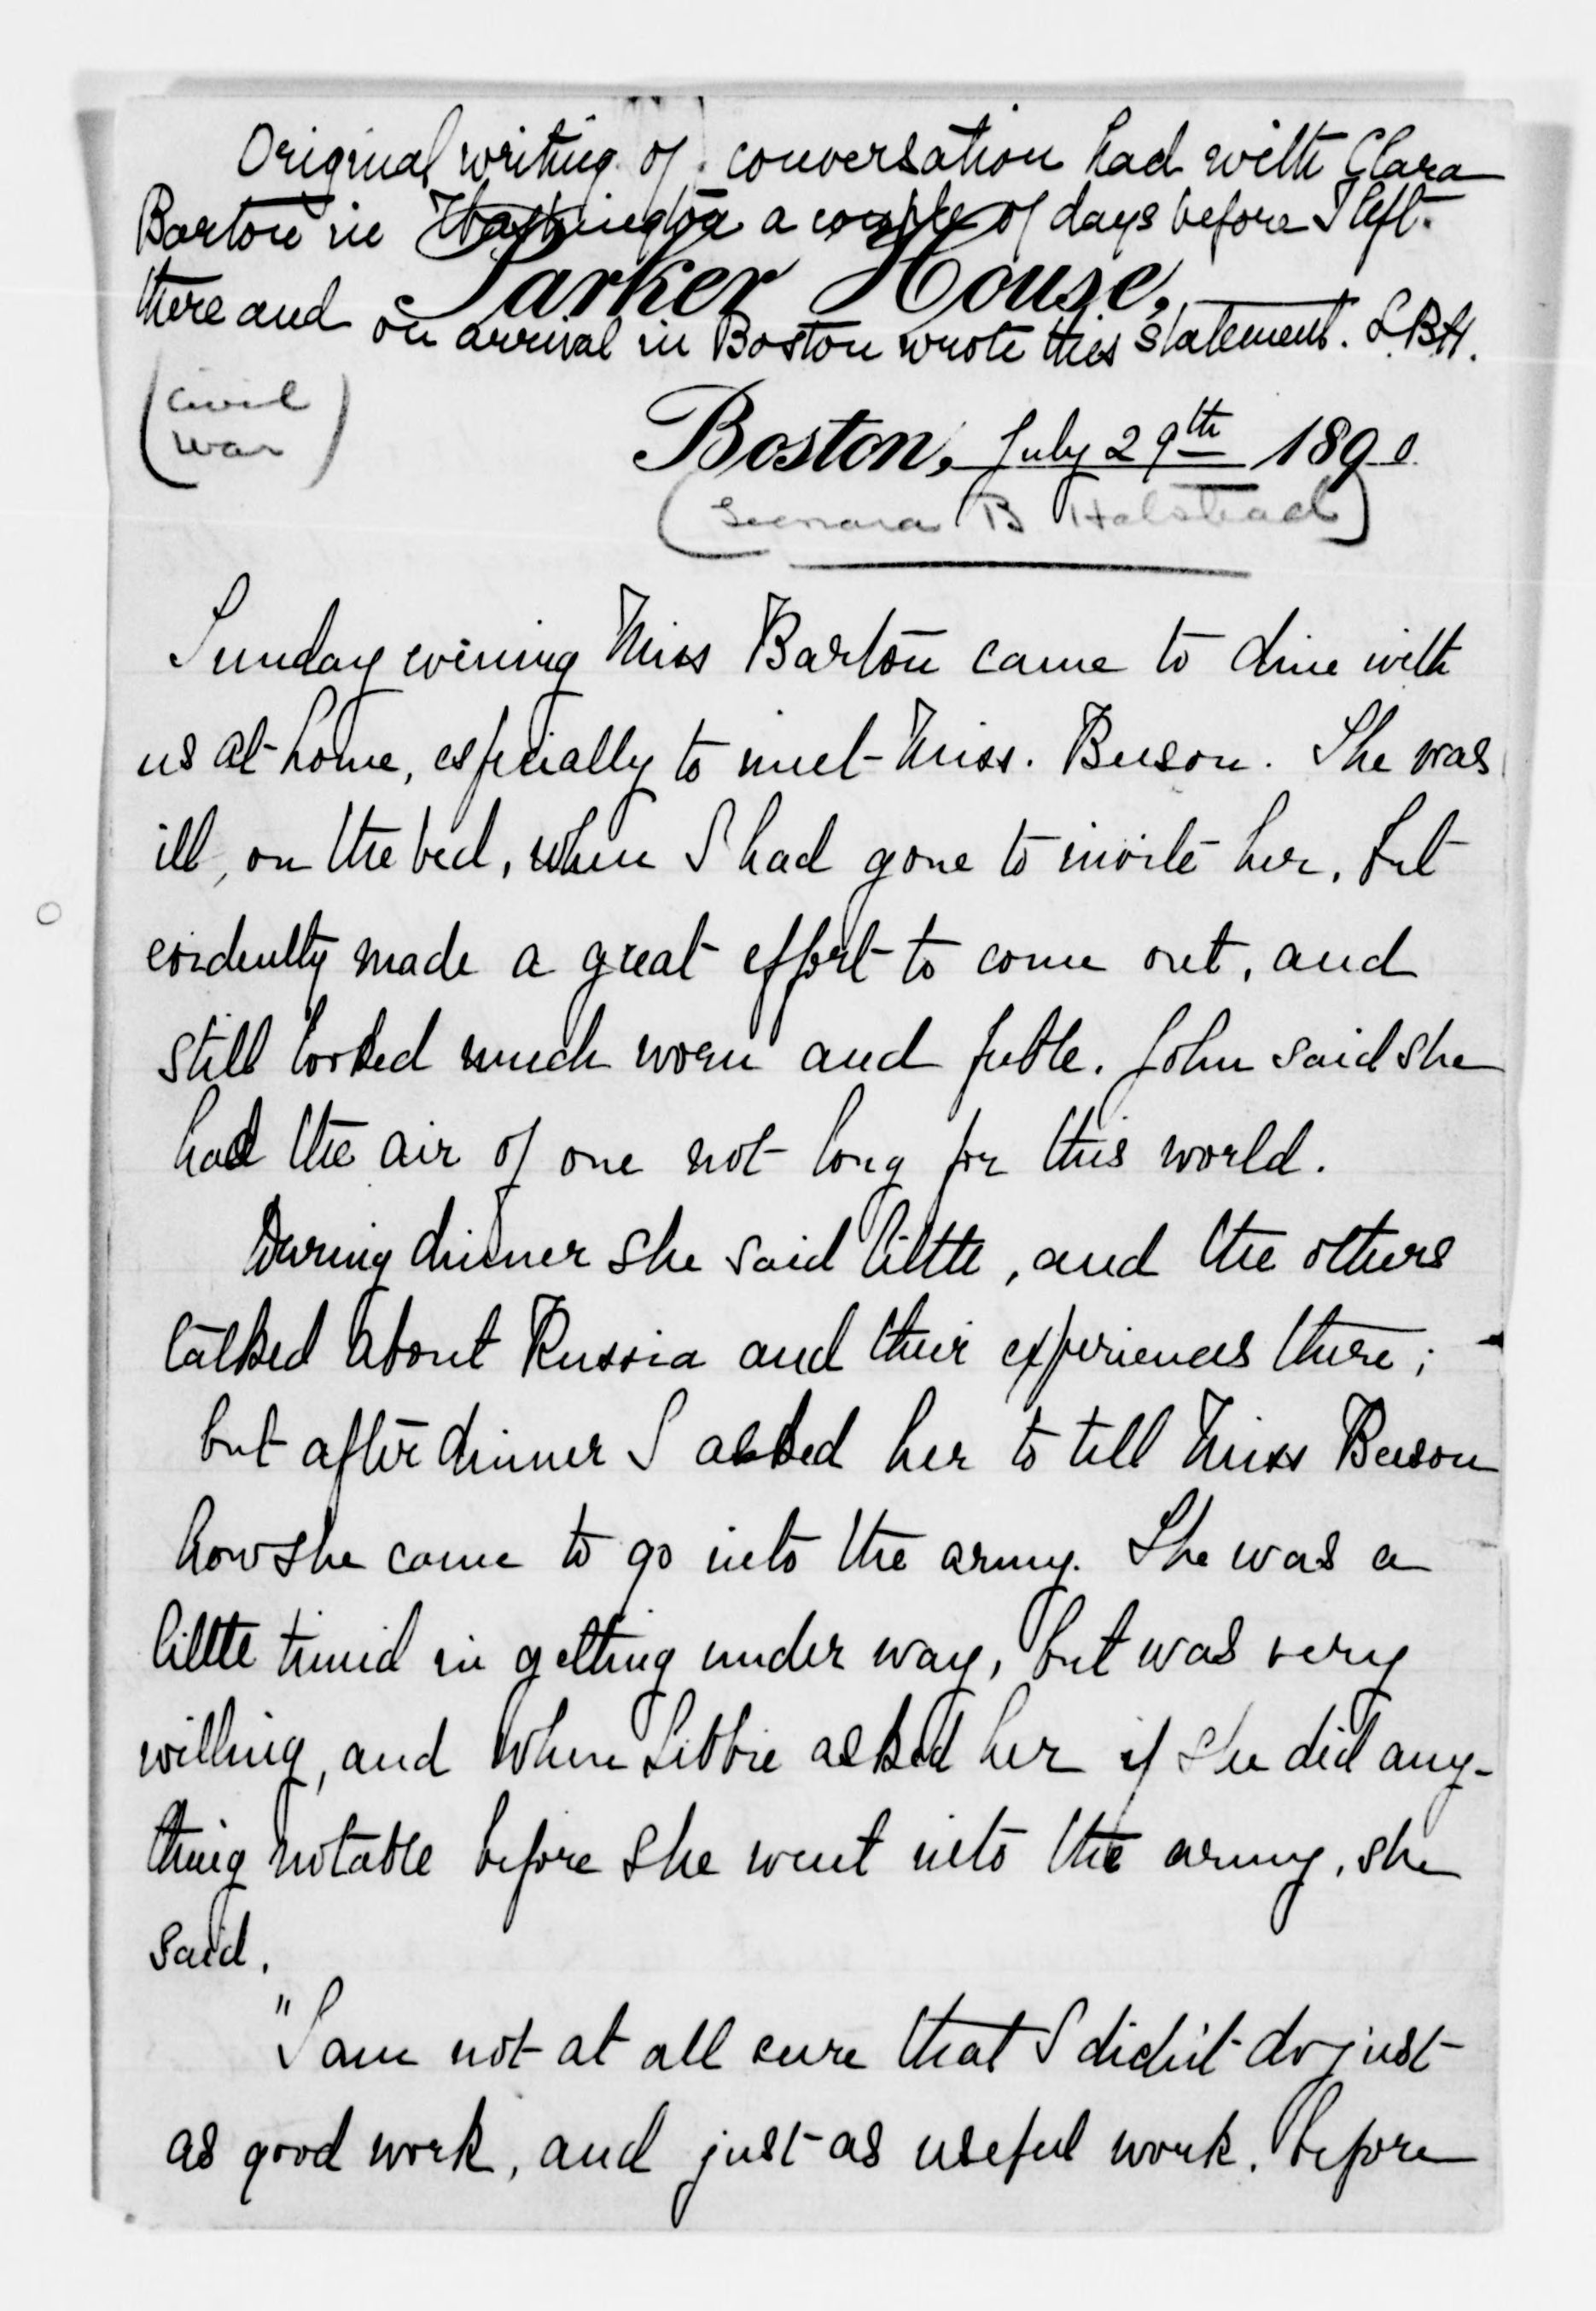 Original writing of conversation had with Clara
Barton in Washington a couple of days before I left
there and on arrival in Boston wrote this statement. L.B.H.
Parker House,
(Civil
War)
Boston, July 29th 1890
(Leonora B Halstead)
Sunday evening Miss Barton came to dine with
us at home, especially to meet Miss. Beeson. She was
ill, on the bed, when I had gone to invite her, but
evidently made a great effort to come out, and
still looked much worn and feeble. John said she
had the air of one not long for this world.
During dinner she said little, and the others
talked about Russia and their experiences there;
but after dinner I asked her to tell Miss Beeson
how she came to go into the army. She was a
little timid in getting under way, but was very
willing, and when Libbie asked her if she did any-
thing notable before she went into the army, she
said,
"I am not at all sure that I didn't do just
as good work, and just as useful work, before